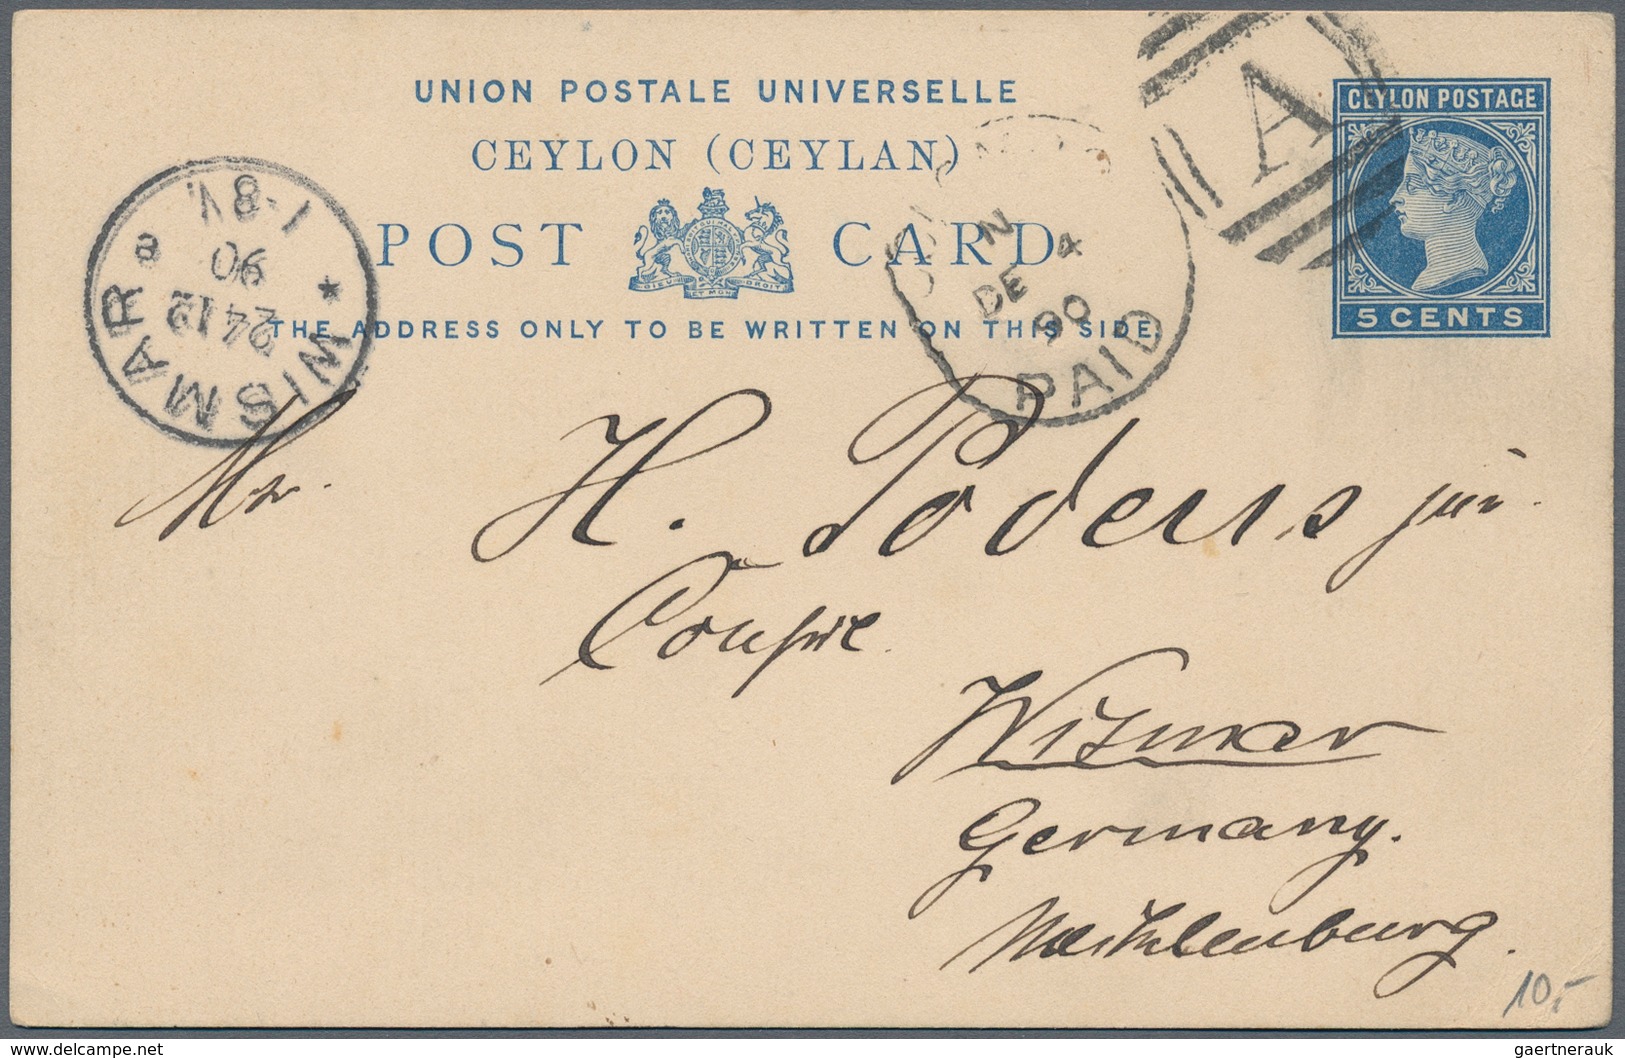 UNION POSTALE UNIVERSELLE
CEYLON (CEYLAN)
POST CARD
DIEU ET MON DROIT
THE ADDRESS ONLY TO BE WRITTEN ON THIS SIDE.
CEYLON POSTAGE
5 CENTS
A
N
DE 4
90
PAID
WISMAR
24 12
90
1-8V.
Mr. H. Podeus jun.
Consul
Wismar
Germany.
Mecklenburg.
10,-
delcampe.net
gaertnerauk